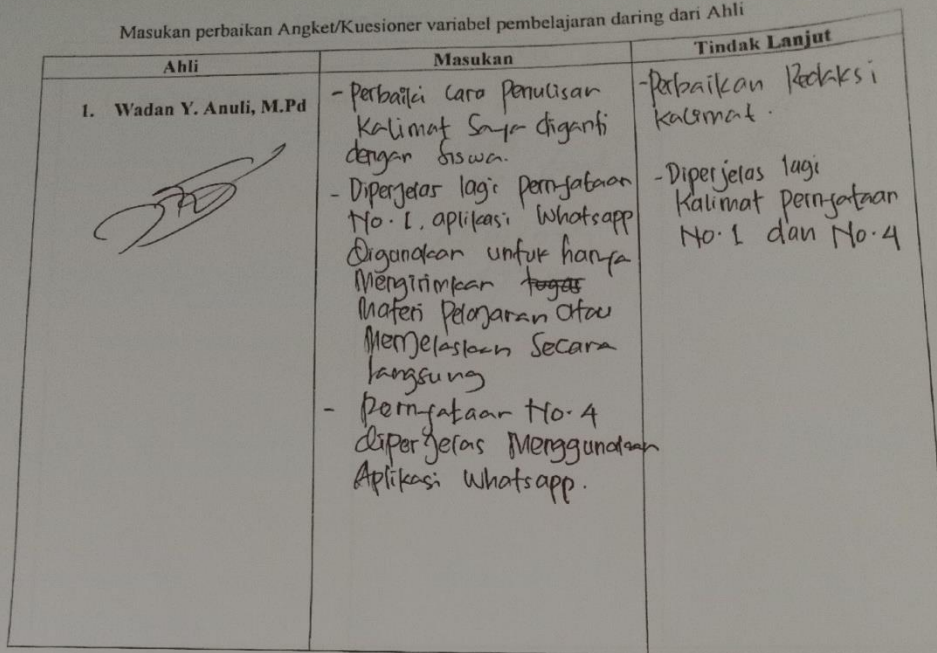 Masukan perbaikan Angket/Kuesioner variabel pembelajaran daring dari Ahli
Ahli
Masukan
Tindak Lanjut
1. Wadan Y. Anuli, M.Pd
- Perbaiki cara Penulisan
Kalimat Saya diganti
dengan siswa.
- Diperjelas lagi pernyataan
No. 1. aplikasi Whatsapp
Digunakan untuk hanya
Mengirimkan tugas
Materi Pelajaran atau
Menjelaskan Secara
langsung
- Pernyataan No. 4
diperjelas Menggunakan
Aplikasi Whatsapp.
- Perbaikan Redaksi
Kalimat.
- Diperjelas lagi
Kalimat pernyataan
No. 1 dan No. 4